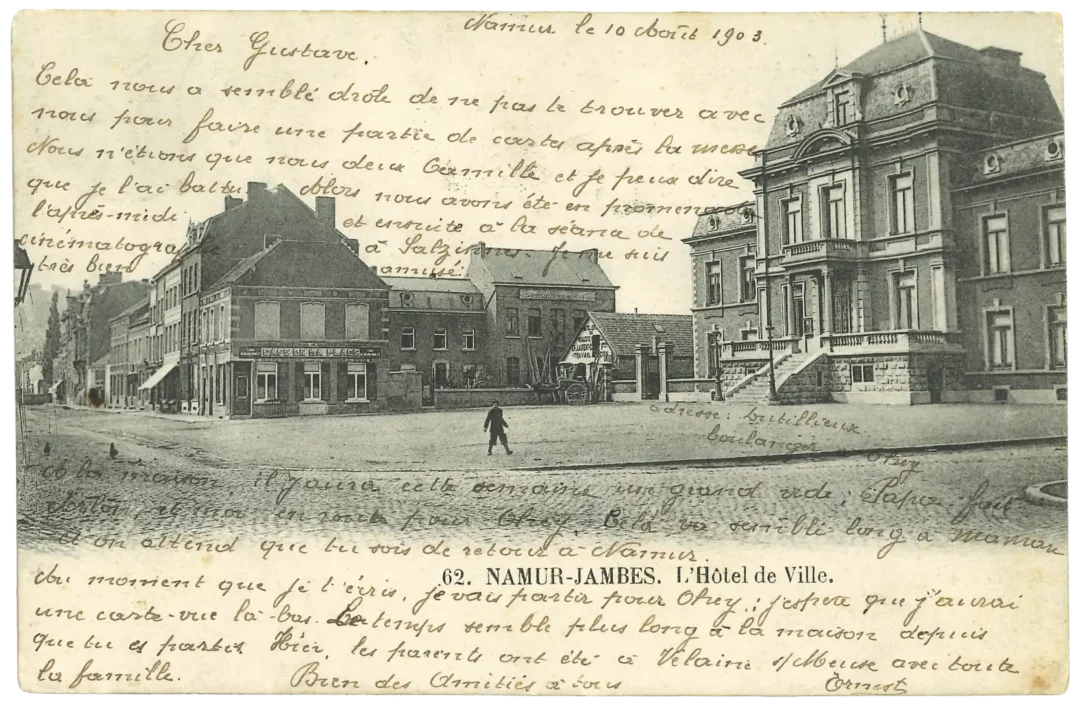 Namur le 10 Août 1903.
Cher Gustave,
Cela nous a semblé drole de ne pas te trouver avec
nous pour faire une partie de cartes après la messe
Nous n'étions que nous deux Camille et je peux dire
que je l'ai battu Alors nous avons été en promenade
l'après-midi et ensuite à la séance de
cinématographe à Salzinnes. Je me suis
très bien amusé.
CAFÉ DE LA PLACE
adresse: butillieux
boulanger Ohey
A la maison, il y aura cette semaine un grand vide; Papa fait
et moi en route pour Ohey. Cela va semblé long à maman
et on attend que tu sois de retour à Namur.
62. NAMUR-JAMBES. L'Hôtel de Ville.
Au moment que je t'écris, je vais partir pour Ohey; j'espère que j'aurai
une carte-vue là-bas. Le temps semble plus long à la maison depuis
que tu es partis. Hier, les parents ont été à Velaine s/Meuse avec toute
la famille. Bien des Amitiés à tous Ernest